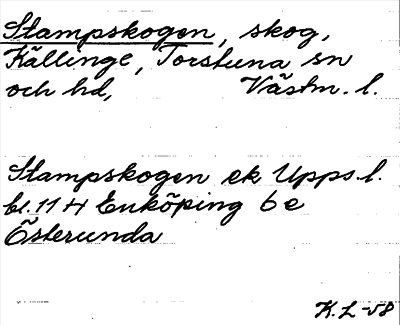 Stampskogen, skog,
Källinge, Torstuna sn
och hd, Västm. l.
Stampskogen ek Upps. l.
bl. 11 H Enköping 6 e
Österunda
K. L -58